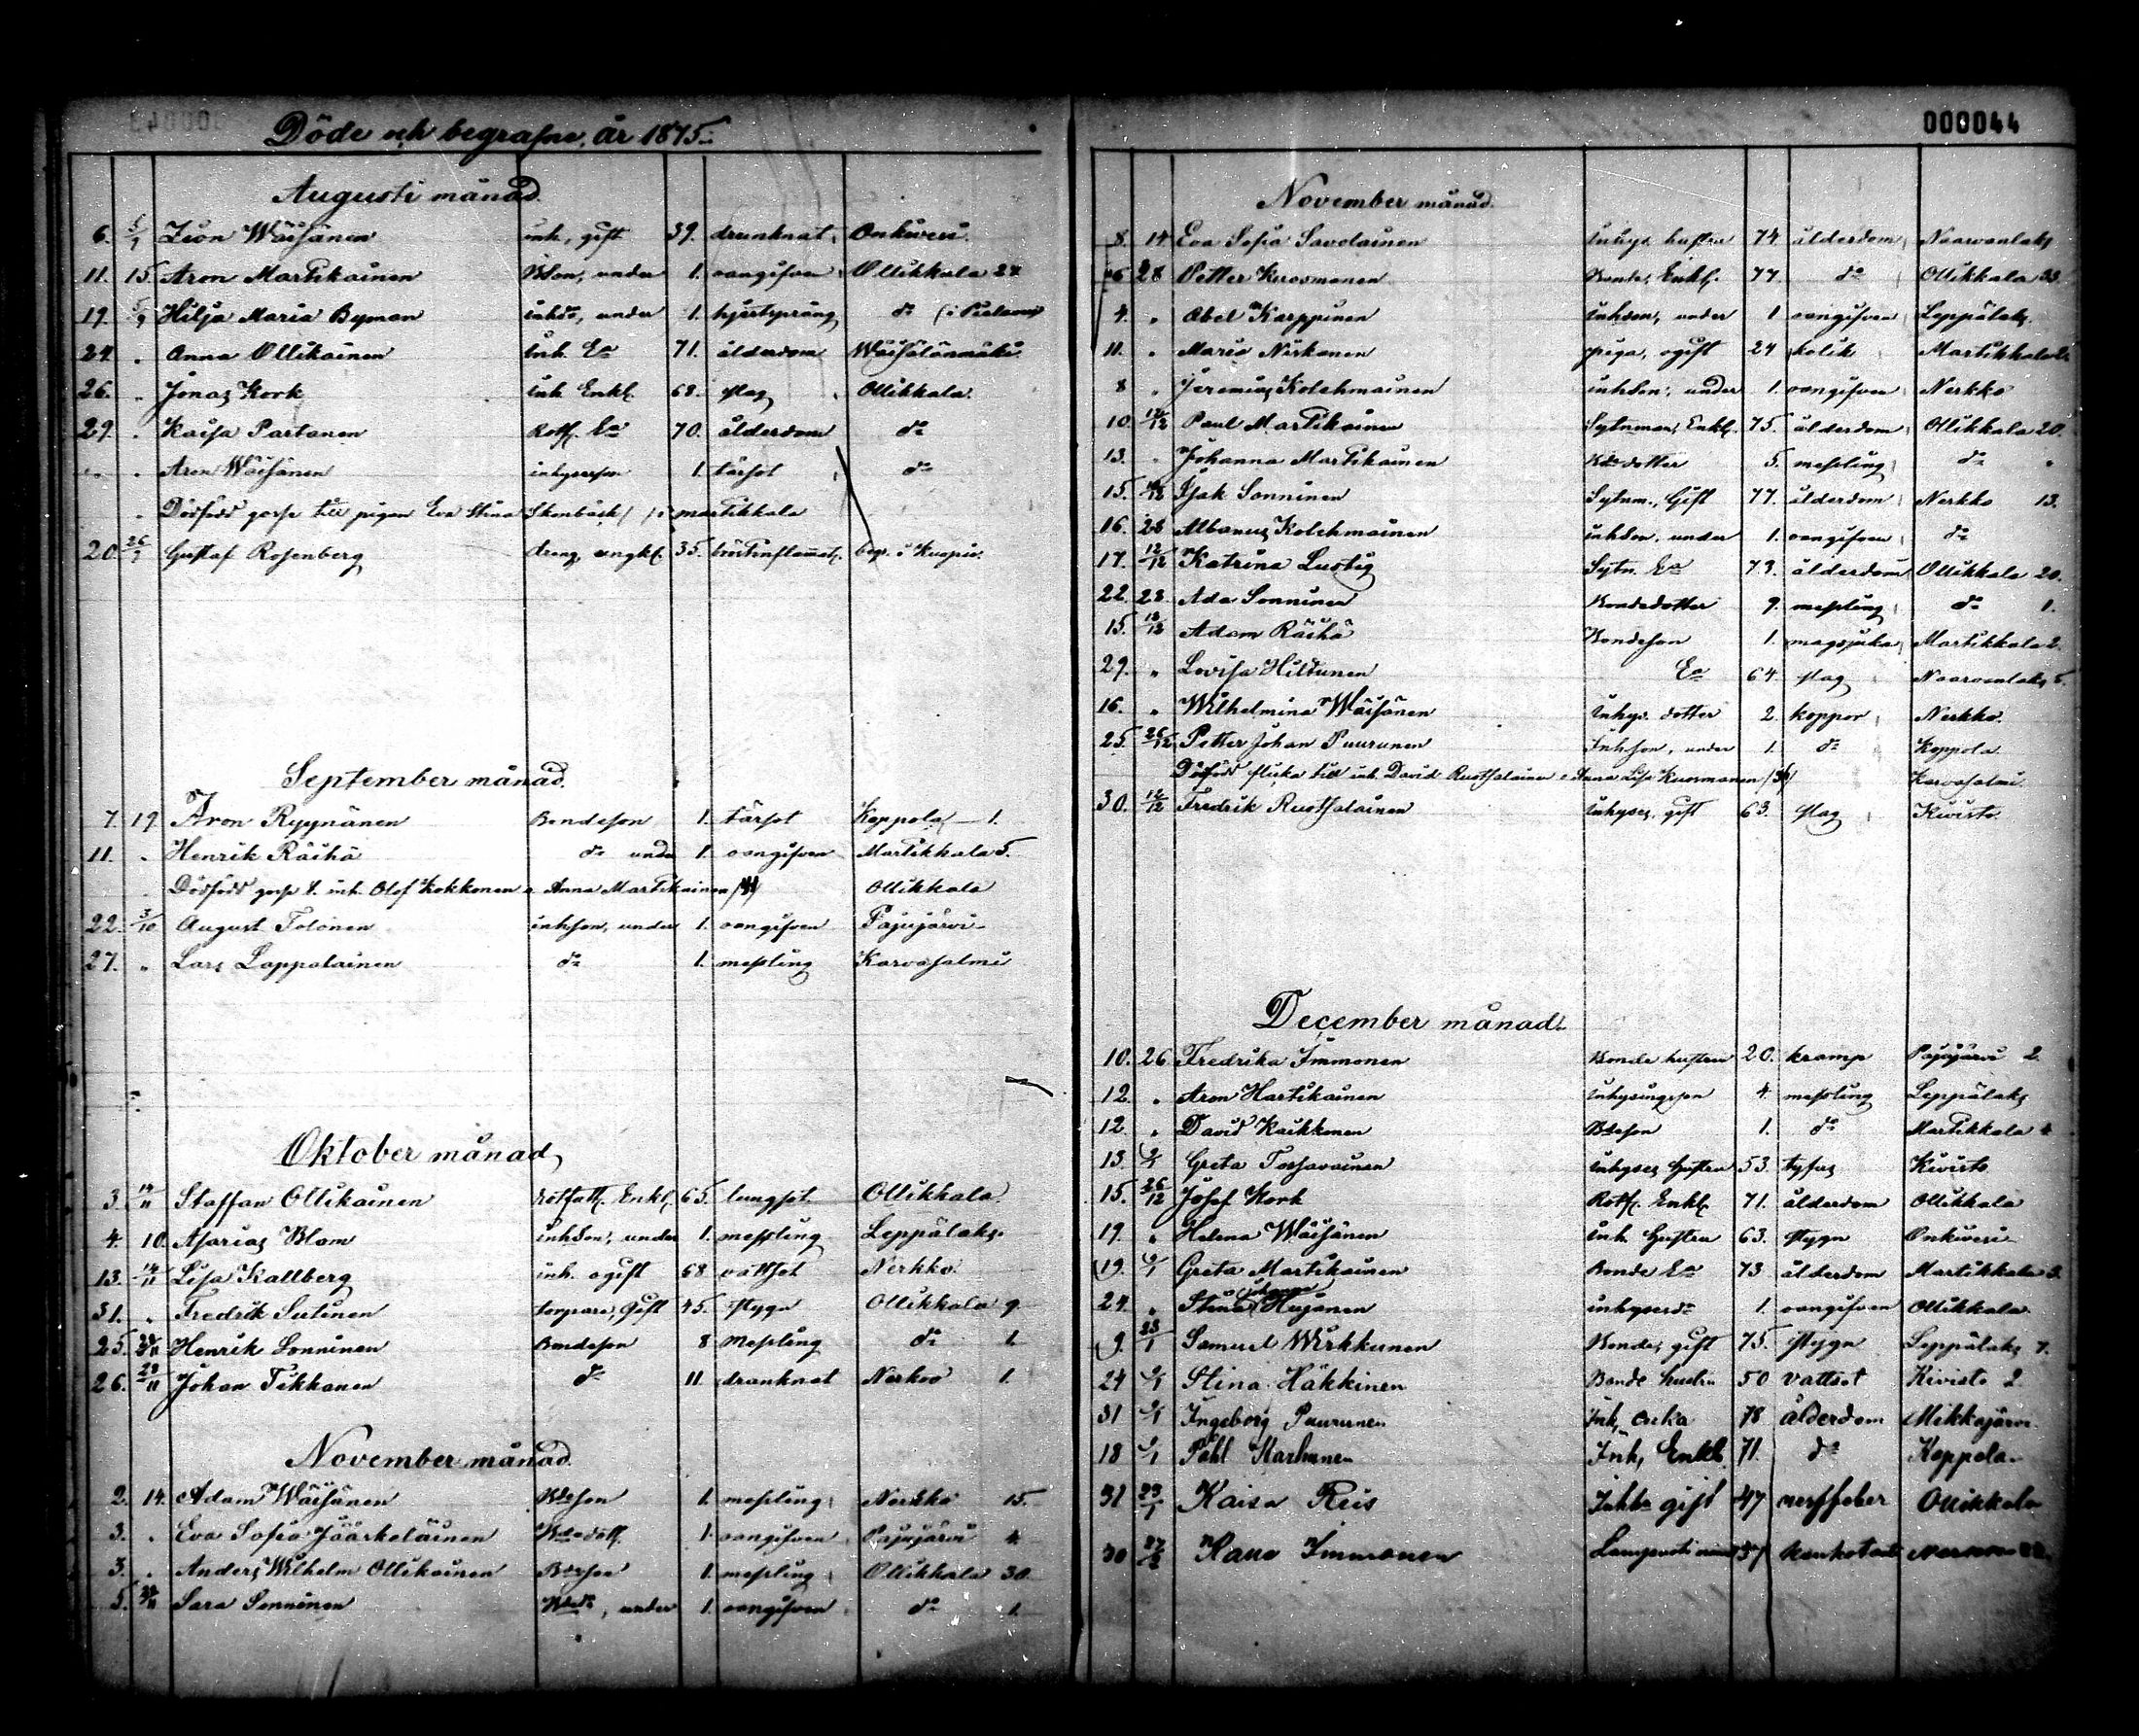 Döde och begrafne, år 1875.
Augusti månad.
6. 5/9 Zion Wäisänen inh., gift 39. drunknat, Onkivesi.
11. 15. Aron Martikainen Bdson, under 1. oangifven Ollikkala 24
19. 5/9 Hilja Maria Byman inhdr, under 1. hjertsprång do (i Pielavesi
24. " Anna Ollikainen Inh. Ea 71. ålderdom Wäisälänmäki
26. " Jonas Kork inh. Enkl. 68. slag Ollikkala.
29. " Kaisa Partanen Rotf. Ea 70. ålderdom do
" " Aron Wäisänen inhysesson 1. tärsot do
" Dödfödd gosse till pigan Eva Stina Stenbäck / i Martikkala
20. 26/9 Gustaf Rosenberg dreng, ungkl. 35. bröstinflamat. begr. i Kuopio.
September månad.
7. 19. Aron Ryynänen Bondeson 1. tärsot Koppola 1.
11. " Henrik Räihä do under 1. oangifven Martikkala 5.
Dödfödd gosse t. inh. Olof Kokkonen o. Anna Martikainen /41/ Ollikkala
22. 3/10 August Tolonen inhson, under 1. oangifven Pajujärvi
27. " Lars Lappalainen do 1. messling Karvasalmi
Oktober månad,
3. 14/11 Staffan Ollikainen rotfatt. Enkl. 65. lungsot Ollikkala
4. 10. Asarias Blom inhson, under 1. messling Leppälaks.
13. 14/11 Lisa Kallberg inh. ogift 68 vattsot Nerkko.
31. " Fredrik Sutinen torpare, Gift 45. stygn Ollikkala 9.
25. 28/11 Henrik Sonninen Bondeson 8 Messling do 1.
26. 28/11 Johan Tikkanen do 11. drunknat Nerkoo 1.
November månad.
2. 14. Adam Wäisänen Bdeson 1. messling Nerkko 15.
3. " Eva Sofia Jääskeläinen Bdedott. 1. oangifven Pajujärvi 4.
3. " Anders Wilhelm Ollikainen Bdeson 1. messling Ollikkala 30.
5. 28/11 Sara Sonninen Bdedr, under 1. oangifven do 1.
000044
November månad.
8. 14 Eva Sofia Savolainen Inhys. hustru 74 ålderdom Naarvanlaks
6 28 Petter Kuosmanen Bonde, Enkl. 77. do Ollikkala 33.
4. " Abel Karppinen Inhson, under 1 oangifven Leppälaks.
11. " Maria Niskanen piga, ogift 24 kolik Martikkala 2.
8 " Jeremias Kolehmainen inhson, under 1. oangifven Nerkko
10. 12/12 Paul Martikainen Sytnman, Enkl. 75. ålderdom Ollikkala 20.
13. " Johanna Martikainen Bdedotter 5. messling do "
15. 12/12 Isak Sonninen Sytnm., Gift 77. ålderdom Nerkko 13.
16. 28 Albanus Kolehmainen inhson, under 1. oangifven do
17. 12/12 Katrina Lustig Sytn. Ea 73. ålderdom Ollikkala 20.
22. 28 Ada Sonninen Bondedotter 9. messling do 1.
15. 12/12 Adam Räihä Bondeson 1. magsjuka Martikkala 2.
29. " Lovisa Hiltunen Ea 64. slag Naarvanlaks 5.
16. " Wilhelmina Wäisänen Inhys. dotter 2. koppor Nerkko.
25. 26/12 Petter Johan Puurunen Inhson, under 1. do Koppola
Dödfödd flicka till inh. David Ruotsalainen o. Anna Lisa Kuosmanen /36/ Karvasalmi.
30. 12/12 Fredrik Ruotsalainen Inhyses, gift 63. slag Kivisto
December månad.
10. 26 Fredrika Immonen Bonde hustru 20. kramp Pajujärvi 2.
12. " Aron Hartikainen Inhysingsson 4. messling Leppälaks
12. " David Kaikkonen Bdeson 1. do Martikkala
13. Greta Torsavainen Inhyses Hustru 53. tyfus Kivisto
15. 26/12 Josef Kork Rotf. Enkl. 71. ålderdom Ollikkala
19. " Helena Wäisänen Inh. Hustru 63. stygn Onkivesi
19. 6/1 Greta Martikainen Bonde Ea 73 ålderdom Martikkala 3.
24. " Stina Hujanen inhysesdr 1. oangifven Ollikkala
9. 23/1 Samuel Wirkkunen Bonde, gift 75. stygn Leppälaks 7.
24 6/1 Stina Häkkinen Bonde hustru 50 vattsot Kivisto 2
31 6/1 Ingeborg Puurunen Inh, enka 78 ålderdom Mikkajärvi
18 6/1 Påhl Karhunen Inh, Enkl. 71. do Koppola
31 23/1 Kaisa Reis gift 47 nervfeber Ollikkala
30 27/2 Immonen 37